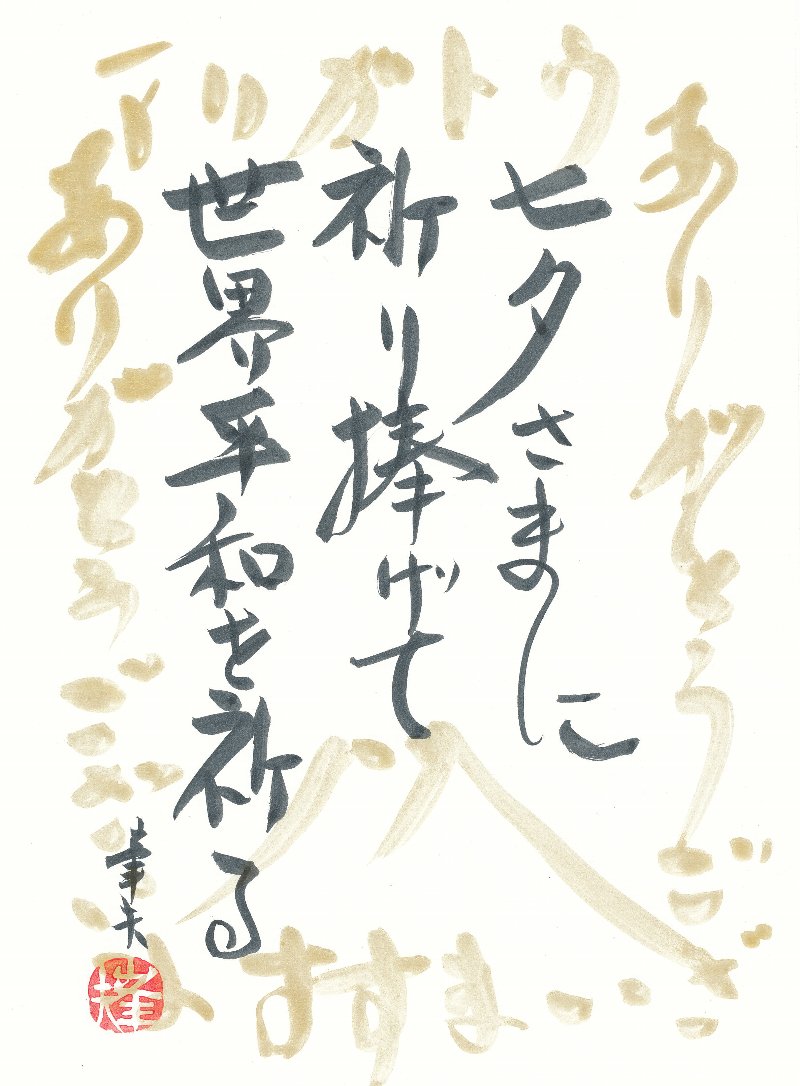 七夕さまに
祈り捧げて
世界平和を祈る
アリガトウ
ありがとうございます
ありがとうございます